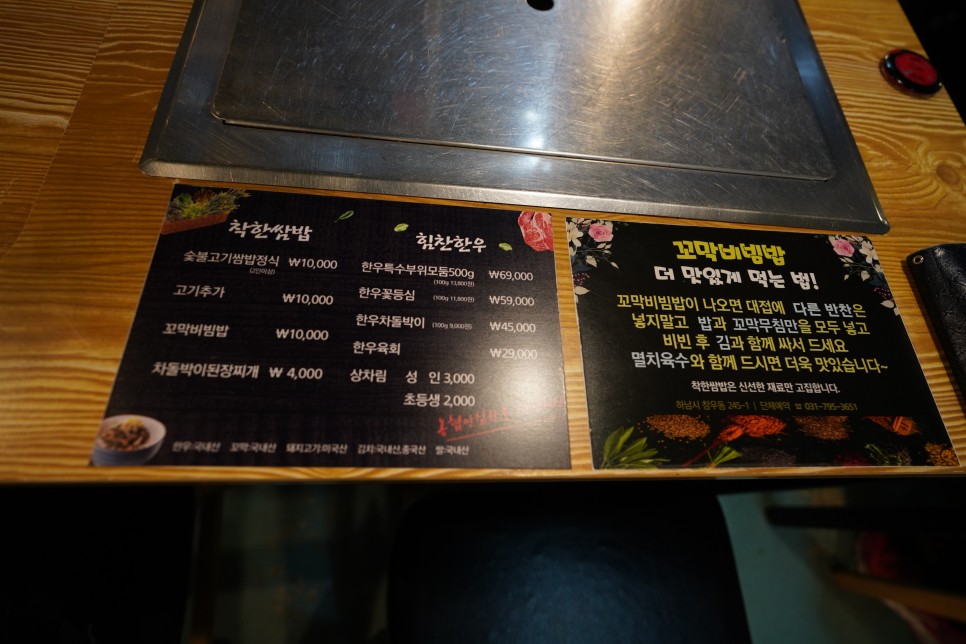 착한쌈밥
숯불고기쌈밥정식 ₩10,000
(2인이상)
고기추가 ₩10,000
꼬막비빔밥 ₩10,000
차돌박이된장찌개 ₩ 4,000
힘찬한우
한우특수부위모둠500g ₩69,000
(100g 13,800원)
한우꽃등심 (100g 11,800원) ₩59,000
한우차돌박이 (100g 9,000원) ₩45,000
한우육회 ₩29,000
상차림 성 인 3,000
초등생 2,000
한우:국내산 꼬막:국내산 돼지고기:미국산 김치:국내산,중국산 쌀:국내산
꼬막비빔밥
더 맛있게 먹는 법!
꼬막비빔밥이 나오면 대접에 다른 반찬은
넣지말고 밥과 꼬막무침만을 모두 넣고
비빈 후 김과 함께 싸서 드세요
멸치육수와 함께 드시면 더욱 맛있습니다~
착한쌈밥은 신선한 재료만 고집합니다.
하남시 창우동 245-1 | 단체예약 ☎ 031-795-3651